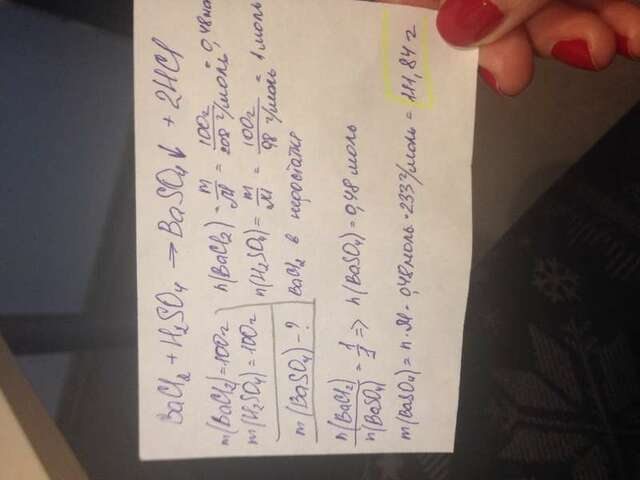 BaCl₂ + H₂SO₄ → BaSO₄↓ + 2HCl
m(BaCl₂)=100г
m(H₂SO₄)=100г
m(BaSO₄)-?
n(BaCl₂) = m/M = 100г/208 г/моль = 0,48мо
n(H₂SO₄) = m/M = 100г/98 г/моль = 1 моль
BaCl₂ в недостатке
n(BaCl₂)/n(BaSO₄) = 1/1 => n(BaSO₄)=0,48 моль
m(BaSO₄)= n·M = 0,48моль·233г/моль = 111,84 г